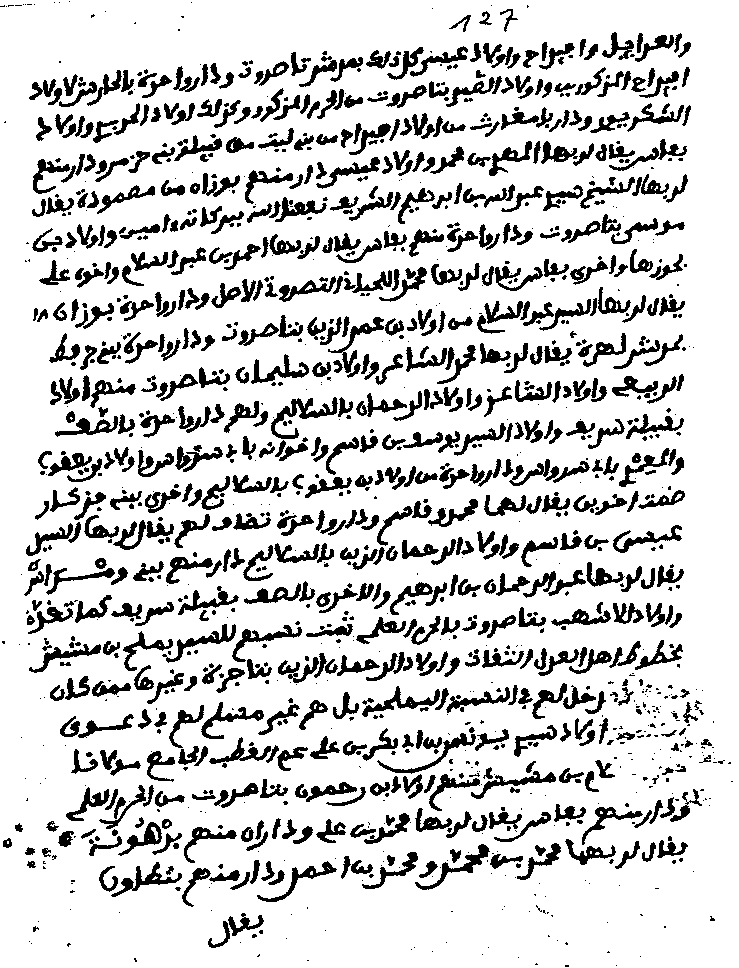 127
والعراجل واجبراح واولاد عيسى كل ذلك بمرمش تاصروت ودار واحدة بالحارش لاولاد
اجبراح المذكورين واولاد الضيو بتاصروت من الحرم المذكور وكذلك اولاد الحريم واولاد
ودار با من اولاد اجبراح من بني ليت من قبيلة بني حزمر ودار منهم
بفاس يقال لربها المعطي بن محمد واولاد عيسى دار منهم بوزان من مصمودة يقال
لربها الشيخ سيدي عبد الله بن ابراهيم الشريف نفعنا الله ببركاته ءامين واولاد بن
موسى بتاصروت ودار واحدة منهم بفاس يقال لربها احمد بن عبد السلام واخرى على
بحوزها واخرى بفاس يقال لربها محمد التصروتي الاصل ودار واحدة بوزان
يقال لربها السيد عبد السلام من اولاد بن عمر الذين بتاصروت ودار واحدة ببني جرفط
يقال لربها محمد الشاعر واولاد بن سليمان بتاصروت منهم اولاد
الربيعي واولاد الشاعر واولاد الرحمان بالسلاليم ولهم دار واحدة بالصف
بقبيلة سريف واولاد السيد يوسف بن قاسم واخوانه واولاد بن يعقوب
ودار واحدة من اولاد بن يعقوب بالسلاليم واخرى ببني جزكار
اخوين يقال لهما محمد وقاسم ودار واحدة لهم يقال لربها السيد
عيسى بن قاسم واولاد الرحمان الذين بالسلاليم دار منهم ببني
يقال لربها عبد الرحمان بن ابرهيم والاخرى بالصف بقبيلة سريف كما تقدم
واولاد الاشهب بتاصروت بالحرم العلمي ثبت نسبهم للسيد يملح بن مشيش
بخطوط اهل العدل الثقات واولاد الرحمان الذين بتاجزة وغيرها ممن كان
دخل لهم في النسبة اليملحية بل هم غير مسلم لهم في دعوى
اولاد سيدي يونس بن ابي بكر بن علي عم القطب الجامع مولانا
لام بن مشيش فمنهم اولاد بن رحمون بتاصروت من الحرم العلمي
ودار منهم بفاس يقال لربها محمد بن علي وداران منهم برهونة
يقال لربها محمد بن محمد ومحمد بن احمد ودار منهم بتطاون
يقال